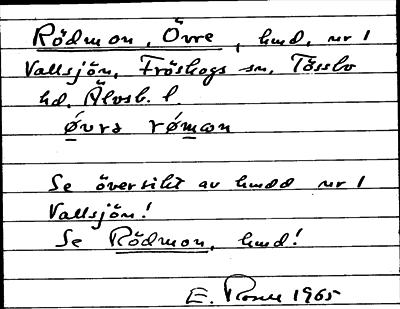 Rödmon, Övre, hmd, nr 1
Vallsjön, Fröskogs sn, Tössbo
hd, Älvsb. l.
øvrə røman
Se översikt av hmdd nr 1
Vallsjön!
Se Rödmon, hmd!
E. 1965